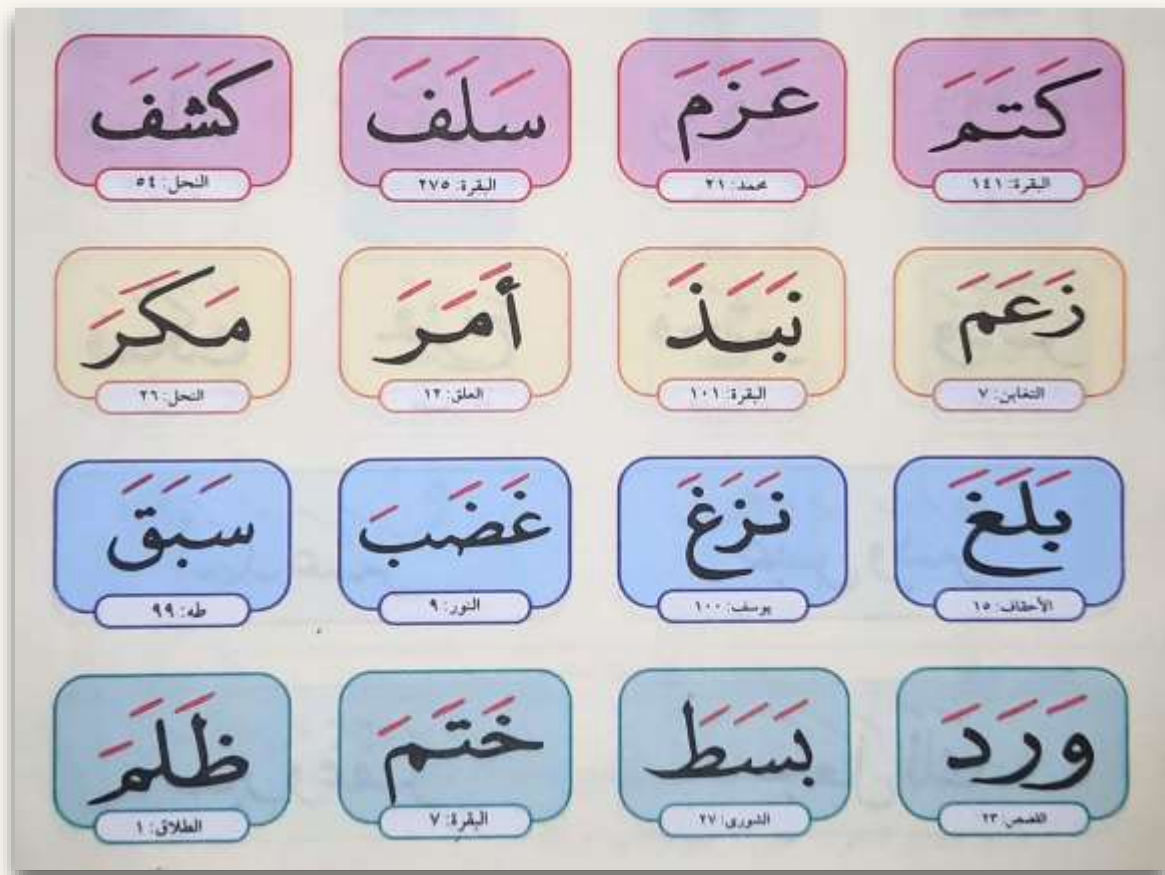 كَتَمَ عَزَمَ سَلَفَ كَشَفَ
البقرة: ١٤١ محمد: ٢١ البقرة: ٢٧٥ النحل: ٥٤
زَعَمَ نَبَذَ أَمَرَ مَكَرَ
التغابن: ٧ البقرة: ١٠١ العلق: ١٢ النحل: ٢٦
بَلَغَ نَزَغَ غَضَبَ سَبَقَ
الأحقاف: ١٥ يوسف: ١٠٠ النور: ٩ طه: ٩٩
وَرَدَ بَسَطَ خَتَمَ ظَلَمَ
القصص: ٢٣ الشورى: ٢٧ البقرة: ٧ الطلاق: ١